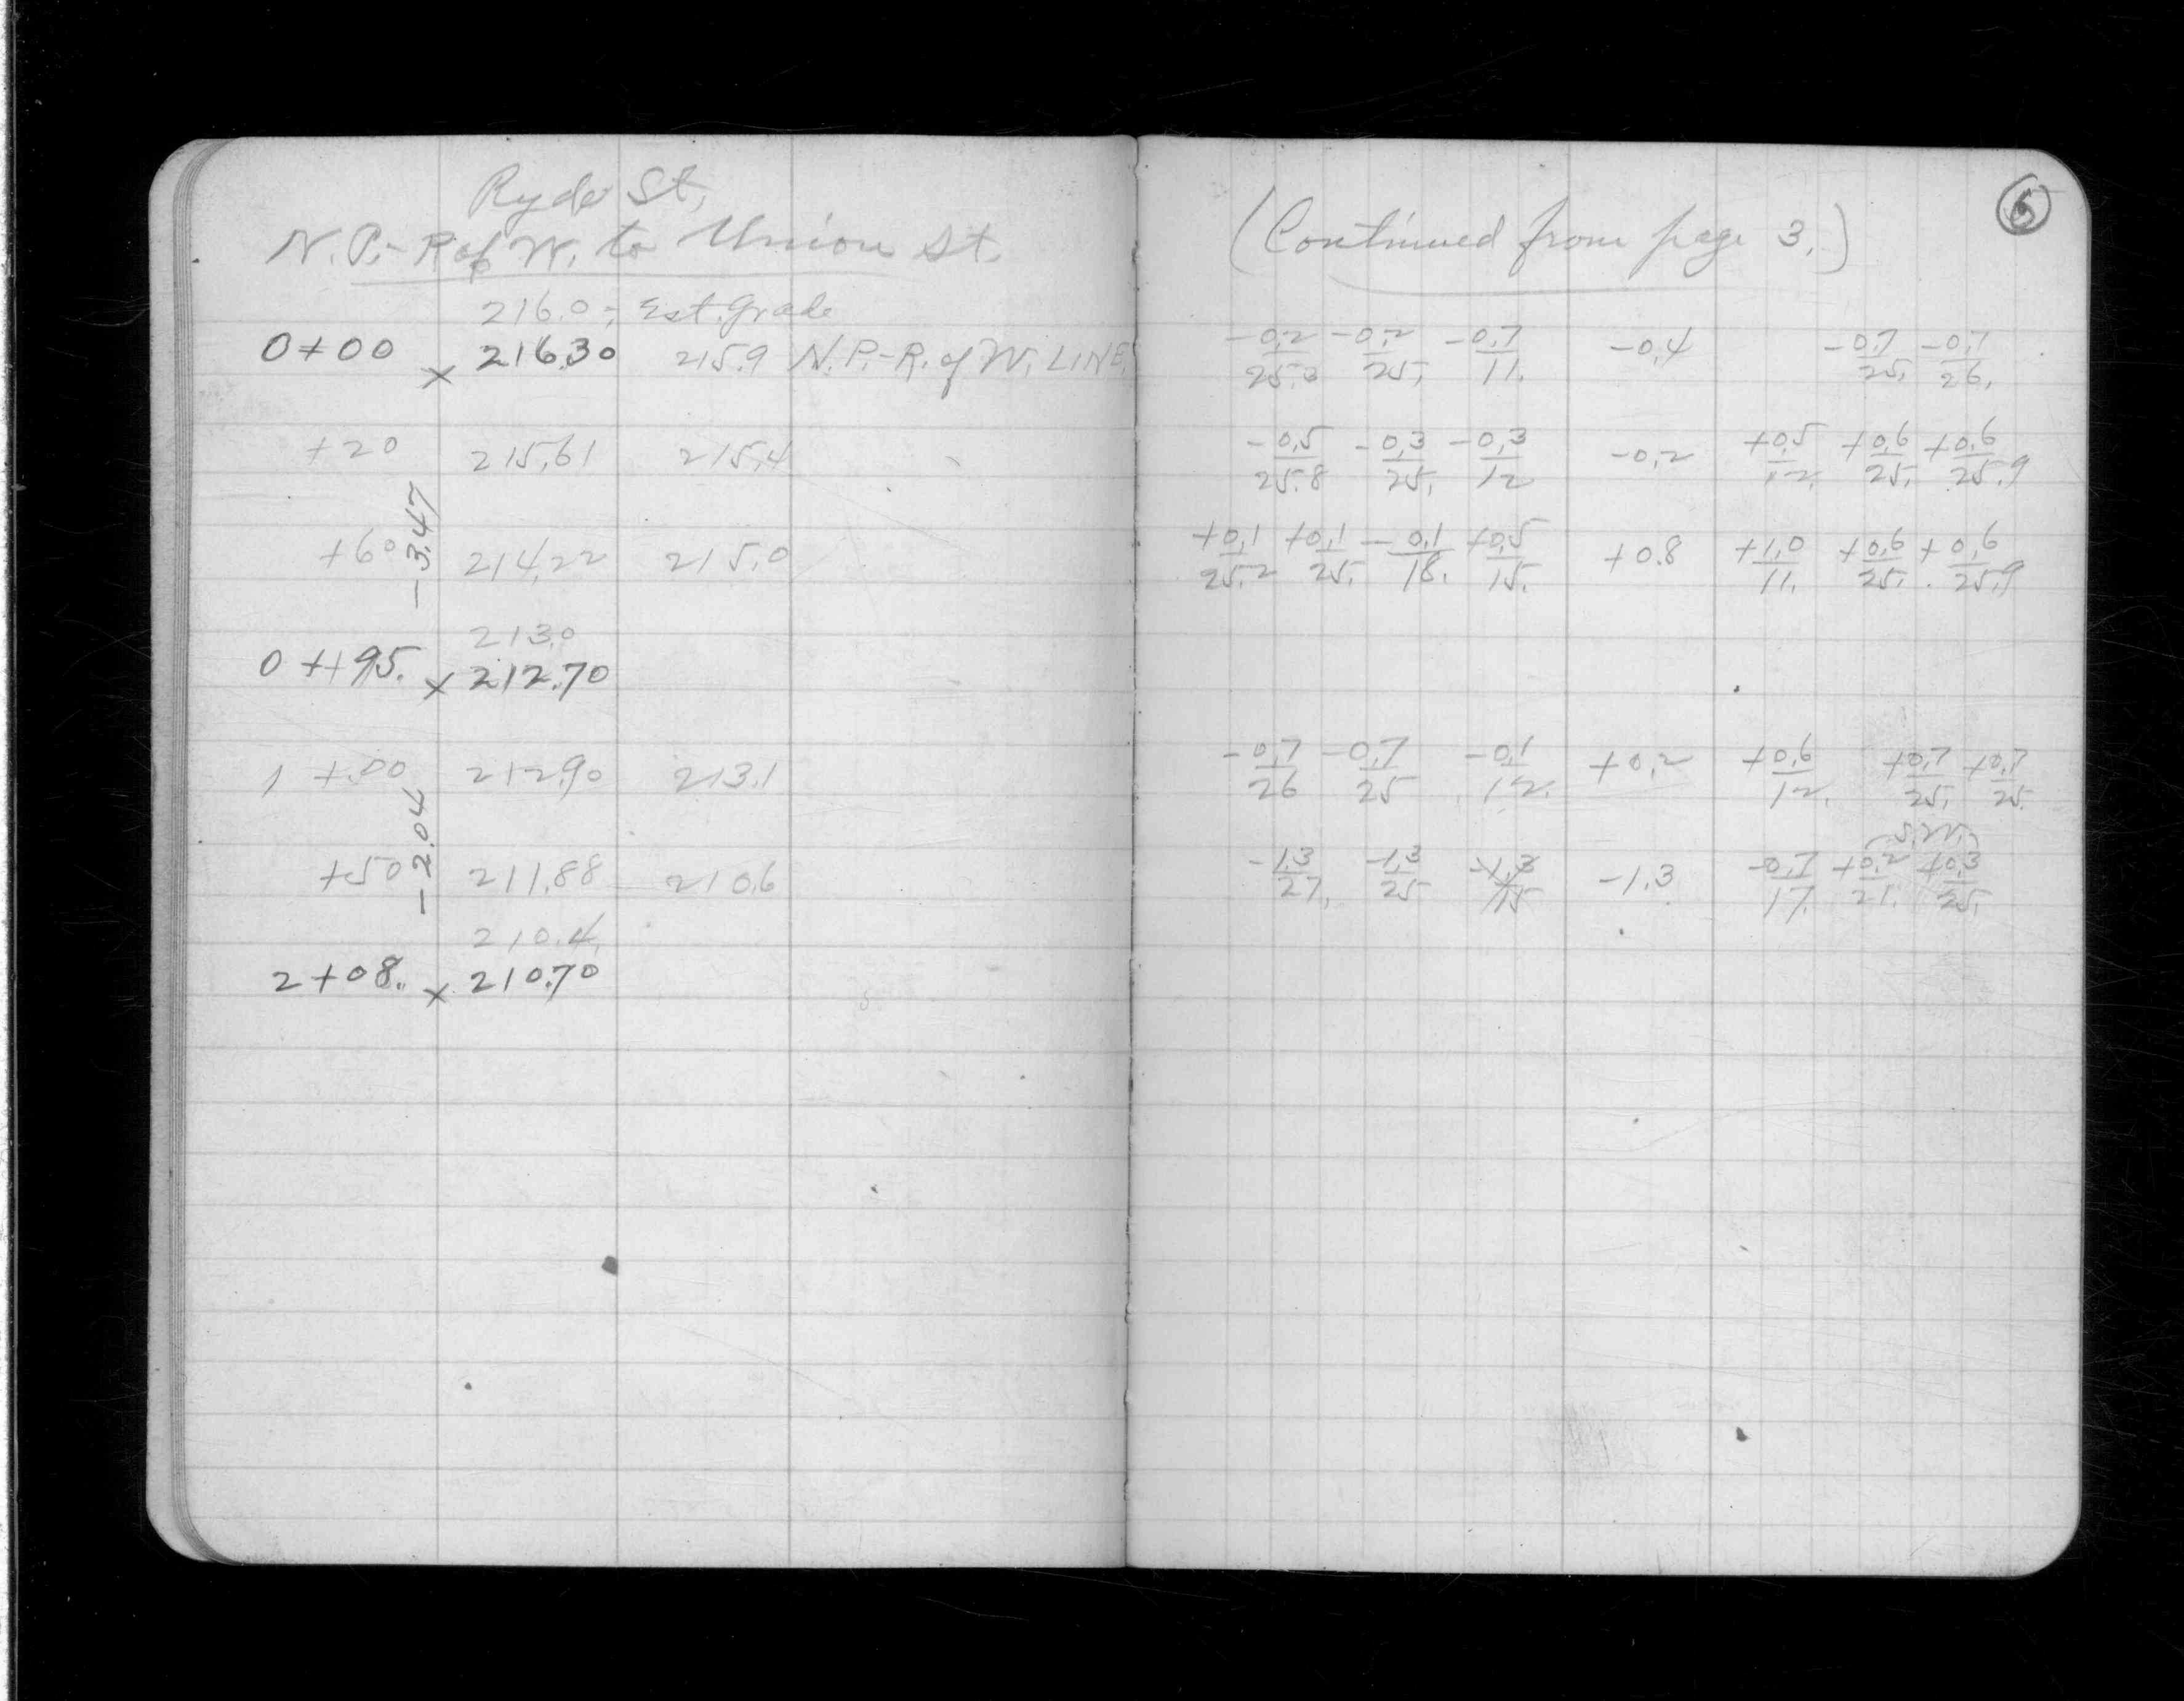 Ryde St,
N.P.-R of W. to Union St.
216.0 = Est. Grade
0+00 x 216.30 215.9 N.P.-R. of W. LINE
+20 215.61 215.4
-3.47
+60 214.22 215.0
213.0
0++95. x 212.70
1+00 212.90 213.1
-2.04
+50 211.88 210.6
210.4
2+08. x 210.70
(Continued from page 3.)
-0.2 -0.2 -0.7 -0.4 -0.7 -0.7
25.3 25. 11. 25. 26.
-0.5 -0.3 -0.3 -0.2 +0.5 +0.6 +0.6
25.8 25. 12 12. 25. 25.9
+0.1 +0.1 -0.1 +0.5 +0.8 +1.0 +0.6 +0.6
25.2 25. 18. 15. 11. 25. 25.9
-0.7 -0.7 -0.1 +0.2 +0.6 +0.7 +0.7
26 25 12. 12. 25. 25.
S.W.
-1.3 -1.3 -1.3 -1.3 -0.7 +0.2 +0.3
27. 25 15 17. 21. 25.